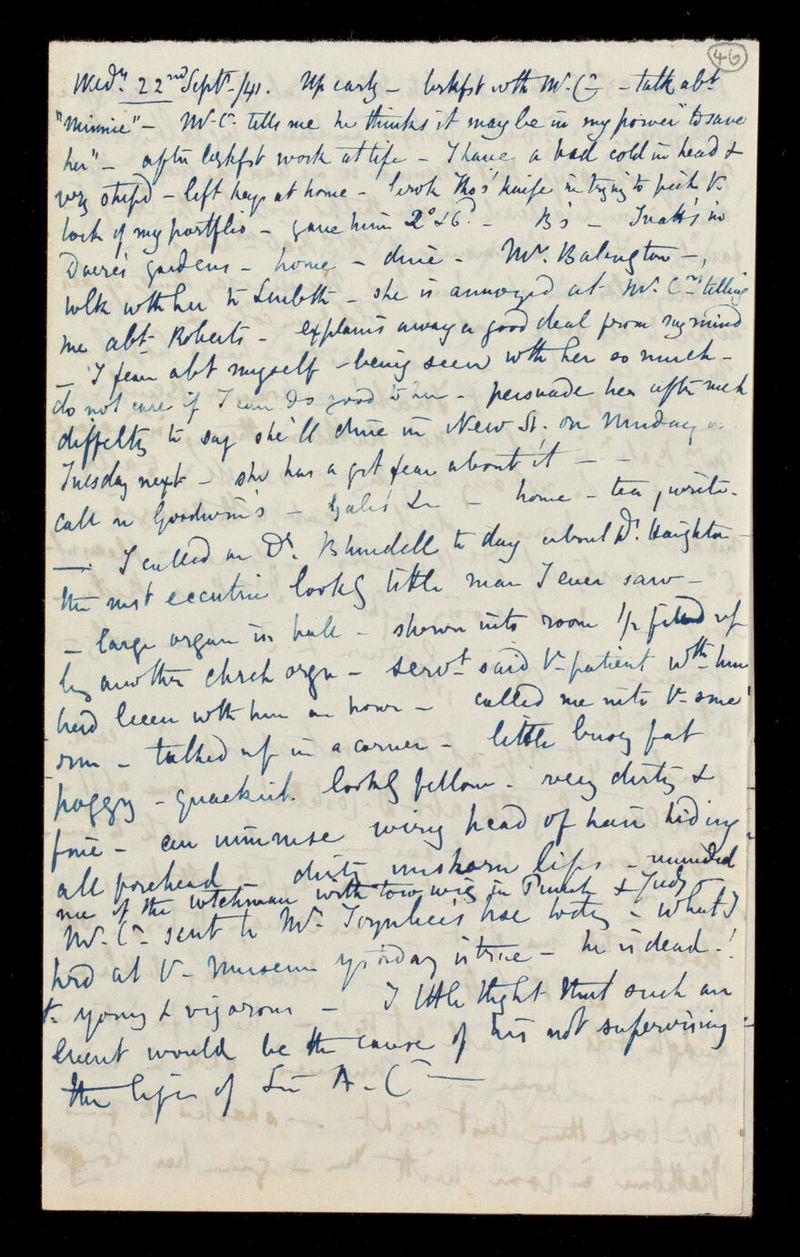 46
Wedy. 22nd Septr./41. Up early – brkfst wth Mr. C– – talk abt
"Minnie" – Mr. C. tells me he thinks it may be in my power "to save
her" – after brkfst work at life – I have a bad cold in head &
very stupid – left keys at home – broke Tho's knife in trying to pick V.
lock of my portflio – gave him 2s & 6d. – B's – Inatt's in
Dacre's gardens – home – dine – Mrs. Babington –,
wlk wth her to Lmbeth – she is annoyed at Mr. C–'s telling
me abt Roberts – explains away a good deal from my mind
– I fear abt myself – being seen wth her so much –
do not care if I can do good to her – persuade her after mch
diffclty to say she'll dine in New St. on Munday or
Tuesday next – she has a grt fear about it – –
call on Goodwin's – Gale's &c – home – tea, write.
— I called on Dr. Blundell to day about Dr. Haighton –
the most eccentric lookg little man I ever saw –
– large organ in hall – shown into room 1/2 filled up
by another chrch orgn – servt said V– patient wth him
had been wth him an hour – called me into V– sme
rm – talked up in a corner – little busy fat
poggy – quackish lookg fellow – very dirty &
fat – an immense wiry head of hair hiding
all forehead – dirty unshorn lips – reminded
me of the wtchman with tow wig in Punch & Judy –
Mr. C– sent to Mr. Toynbee's hse today – what I
hrd at V– Museum ystrday is true – he is dead –!
t– young & vigorous – I lttle thght that such an
event would be the cause of his not supervising
the life of Sir A– C– —